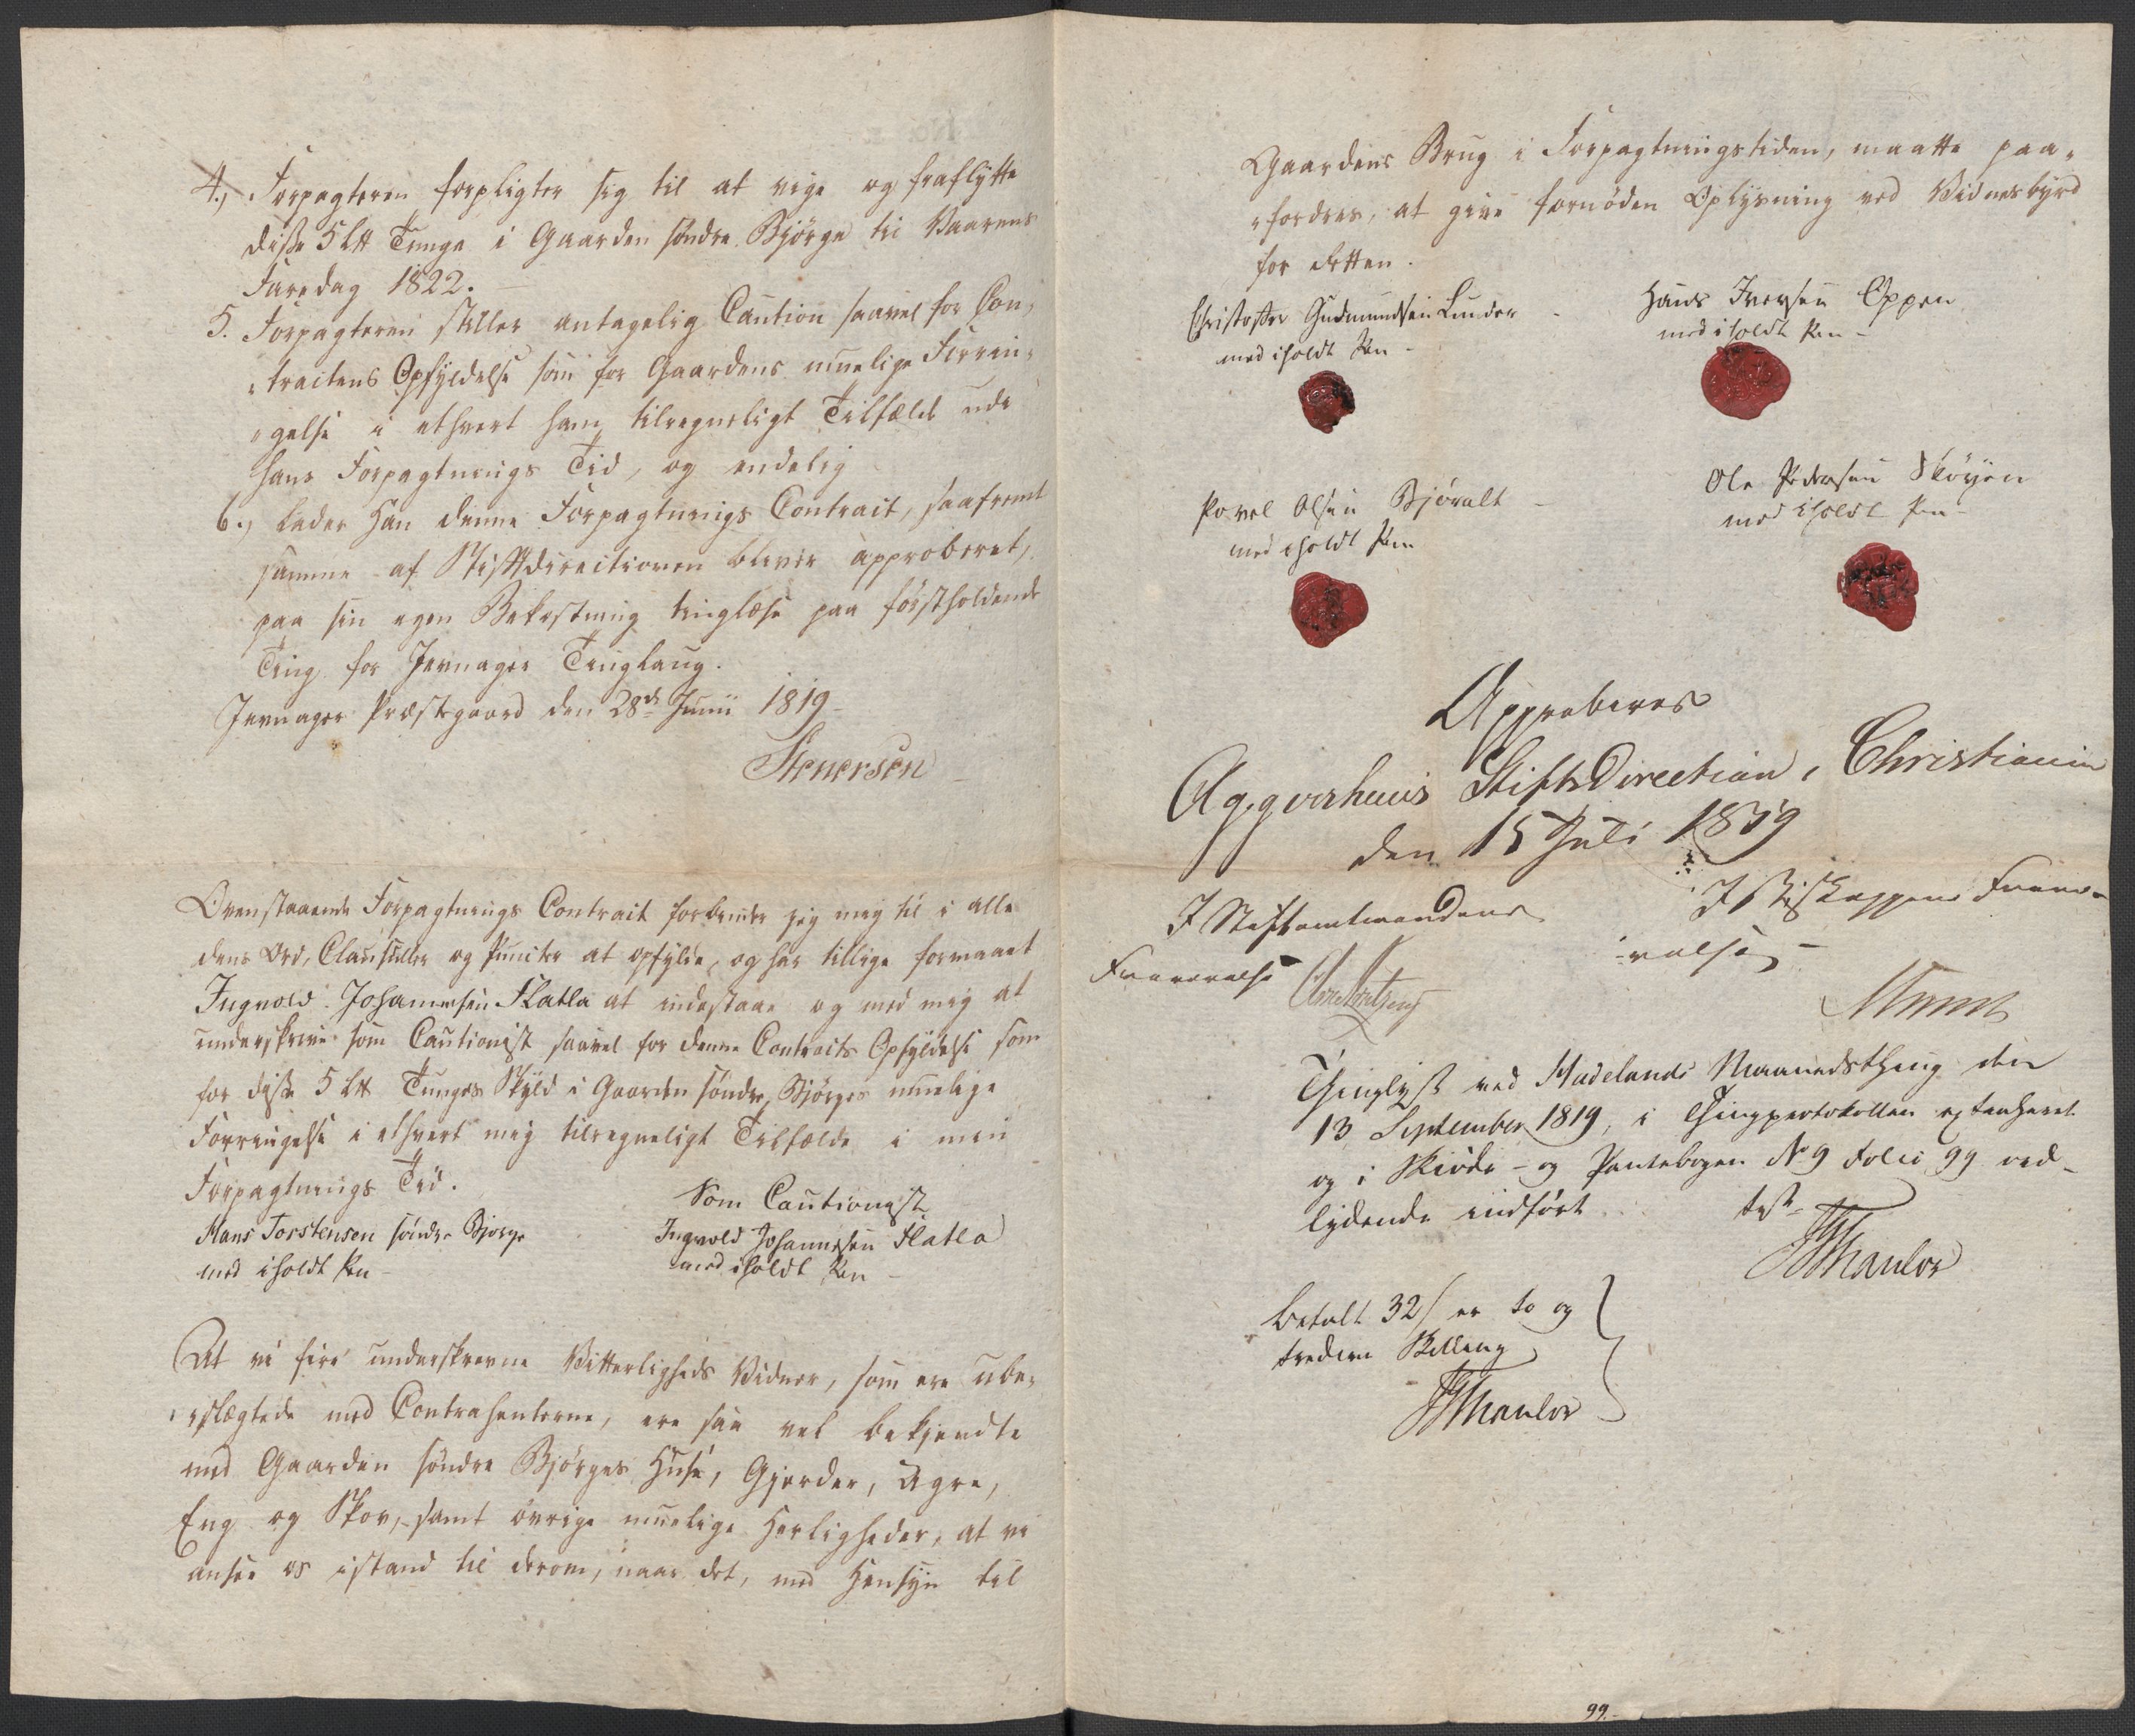 4., Forpagteren forpligter sig til at vige og fraflytte
disse 5 L℔ Tunge i Gaarden søndre Bjørge til Vaarens
Faredag 1822.
5. Forpagteren stiller antagelig Caution saavel for Con„
„tractens Opfyldelse som for Gaardens muelige Forrin„
„gelse i ethvert ham tilregneligt Tilfælde udi
hans Forpagtnings Tid, og endelig
6., lader Han denne Forpagtnings Contract, saafremt
samme af Stiftdirectionen bliver approberet,
paa sin egen Bekostning tinglæse paa førstholdende
Ting for Jevnager Tinglaug.
Jevnager Præstegaard den 28de Junii 1819
Stenersen
Ovenstaaende Forpagtnings Contract forbinder jeg mig til i alle
dens Ord, Clausuller og Puncter at opfylde, og har tillige formaaet
Ingvold Johannesen Flatla at indestaae og med mig at
underskrive som Cautionist saavel for denne Contracts Opfyldelse som
for disse 5 L℔ Tunges Skyld i Gaarden søndre Bjørges muelige
Forringelse i ethvert mig tilregneligt Tilfælde i min
Forpagtnings Tid.
Som Cautionist
Hans Torstensen søndre Bjørge
med iholdt Pen
Ingvold Johannesen Flatla
med iholdt Pen
At vi fire underskrevne Vitterligheds Vidner, som ere ube„
„slægtede med Contrahenterne, ere saa vel bekjendte
med Gaarden søndre Bjørges Huse, Gjerder, Agre,
Eng og Skov, samt øvrige muelige Herligheder, at vi
ansee os istand til derom, naar det, med Hensyn til
Gaardens Brug i Forpagtningstiden, maatte paa„
„fordres, at give fornøden Oplysning ved Vidnesbyrd
for Retten.
Christoffer Gudmundsen Lunder
med iholdt Pen
Hans Iversen Oppen
med iholdt Pen
Povel Olsen Bjøralt
med iholdt Pen
Ole Pedersen Skøyen
med iholdt Pen
Approberes
Aggerhuus StiftsDirection, Christiania
den 15 Juli 1819
I Stiftamtmandens
Fraværelse
I Biskoppens Fravæ-
relse
Thinglyst ved Hadelands Maanedsthing den
13 September 1819, i Thingprotokollen extraheret
og i Skiøde- og Pantebogen No 9 Folio 99 ved-
lydende indført test
Thaulow
Betalt 32 s er to og
tredive Skilling
Thaulow
99.